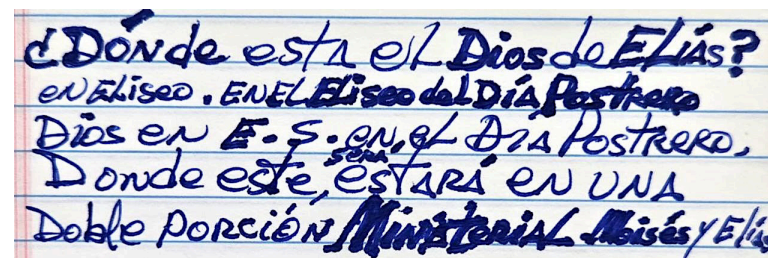 ¿Dónde esta el Dios de Elías?
en Eliseo. EN EL Eliseo del Día Postrero
Dios en E.S. en el Día Postrero,
Donde este, será estará en una
Doble Porción Ministerial Moisés y Elías